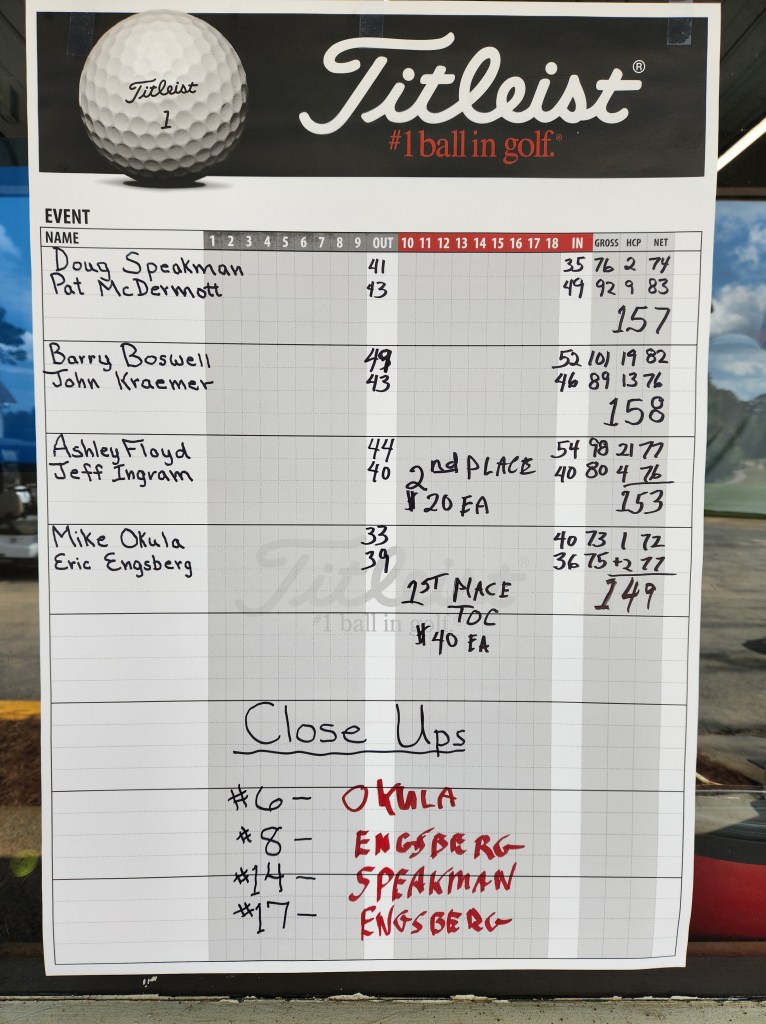 Titleist
1
Titleist®
#1 ball in golf.®
EVENT
NAME 1 2 3 4 5 6 7 8 9 OUT 10 11 12 13 14 15 16 17 18 IN GROSS HCP NET
Doug Speakman 41 35 76 2 74
Pat McDermott 43 49 92 9 83
157
Barry Boswell 49 52 101 19 82
John Kraemer 43 46 89 13 76
158
Ashley Floyd 44 54 98 21 77
Jeff Ingram 40 40 80 4 76
2nd PLACE
$20 EA
153
Mike Okula 33 40 73 1 72
Eric Engsberg 39 36 75 +2 77
Titleist
#1 ball in golf.
1ST PLACE
TOC
$40 EA
149
Close Ups
#6 - OKULA
#8 - ENGSBERG
#14 - SPEAKMAN
#17 - ENGSBERG